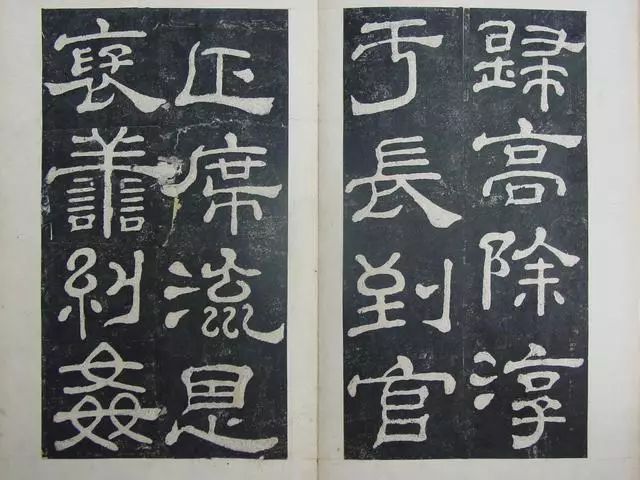 歸高除淳
于長到官
正席流恩
褒譱糾姦